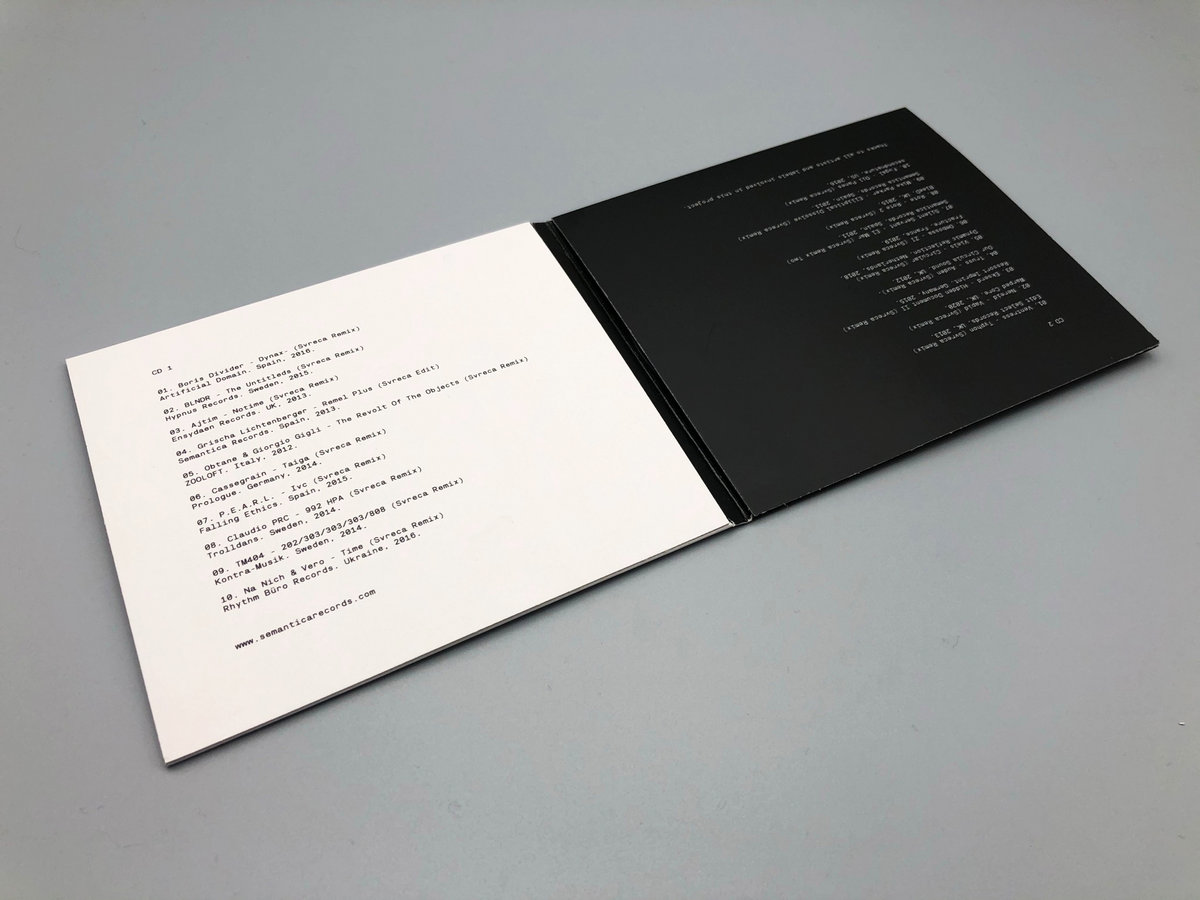 CD 1
01. Boris Divider - Dynax. (Svreca Remix)
Artificial Domain. Spain, 2016.
02. BLNDR - The Untitleds (Svreca Remix)
Hypnus Records. Sweden, 2015.
03. Ajtim - Notime (Svreca Remix)
Ensydaen Records. UK, 2013.
04. Grischa Lichtenberger - Remel Plus (Svreca Edit)
Semantica Records. Spain, 2013.
05. Obtane & Giorgio Gigli - The Revolt Of The Objects (Svreca Remix)
ZOOLOFT. Italy, 2012.
06. Cassegrain - Taiga (Svreca Remix)
Prologue. Germany, 2014.
07. P.E.A.R.L. - Ivc (Svreca Remix)
Falling Ethics. Spain, 2015.
08. Claudio PRC - 992 HPA (Svreca Remix)
Trolldans. Sweden, 2014.
09. TM404 - 202/303/303/303/808 (Svreca Remix)
Kontra-Musik. Sweden, 2014.
10. Na Nich & Vero - Time (Svreca Remix)
Rhythm Büro Records. Ukraine, 2016.
www.semanticarecords.com
CD 2
01. Ventress - Typhon (Svreca Remix)
Edit Select Records. UK, 2013.
02. Nereid - Vapid (Svreca Remix)
Warped Core. UK, 2020.
03. Eksord - Hidden Document 11 (Svreca Remix)
Resort Imprint. Germany, 2015.
04. Truss - Auden (Svreca Remix)
Our Circula Sound. UK, 2012.
05. Vials - Circular (Svreca Remix)
Dynamic Reflection. Netherlands, 2018.
06. - ZI (Svreca Remix Two)
Fracture. France, 2019.
07. Silent Servant - El Mar (Svreca Remix)
Semantica Records. Spain, 2011.
08. Rote - Rote 2 (Svreca Remix)
UK, 2015.
09. Mike Parker - Elliptical Dissolve (Svreca Remix)
Semantica Records. Spain, 2011.
10. Fugal - Oil Panes (Svreca Remix)
secondnature. US, 2016.
Thanks to all artists and labels involved in this project.